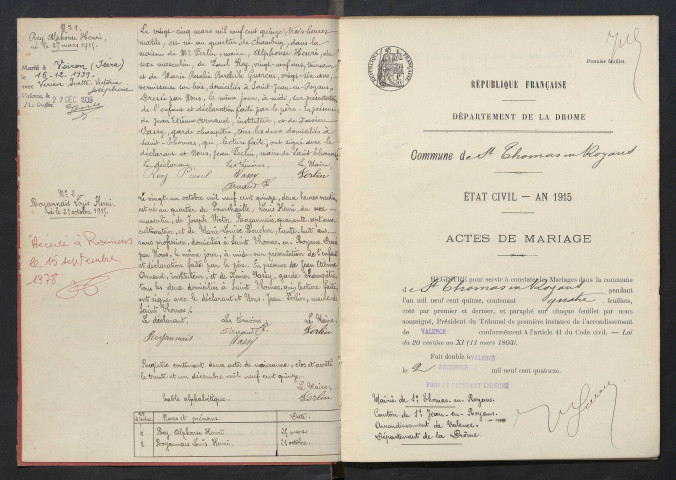 N° 1.
Rey Alphonse Henri,
né le 25 mars 1915.
Marié à Voiron (Isère)
le 16-12-1939
avec
Joséphine
Valence, le 27 DEC 1939
Le Greffier,
Le vingt-cinq mars mil neuf cent quinze, trois heures
matin, est né au quartier de
maison de Mr Ferlin, maire, Alphonse Henri, du
sexe masculin, de Paul Rey, vingt-neuf ans,
et de Marie Rosalie Berthile vingt-six ans,
domiciliés à Saint-Jean-en-Royans.
Dressé par Nous, le même jour, à midi, sur présentation
de l'enfant et déclaration faite par le père. En présence
de Jean Etienne Arnaud, instituteur, et de Xavier
Vassy, garde champêtre, tous les deux domiciliés à
Saint-Thomas, qui, lecture faite, ont signé avec le
déclarant et Nous, Jean Ferlin, maire de Saint Thomas.
Le déclarant, Les témoins, Le Maire,
Rey Paul Vassy Ferlin
Arnaud
N° 2.
Royannais Louis Henri,
né le 21 octobre 1915.
Décédé à Romans
le 15 septembre
1978
Le vingt-un octobre mil neuf cent quinze, deux heures matin,
est né au quartier de Louis Henri, du sexe
masculin, de Joseph Victor Royannais, quarante-sept ans,
cultivateur, et de Marie Louise trente-huit ans,
sans profession, domiciliés à Saint Thomas-en-Royans. Dressé
par Nous, le même jour, à midi, sur présentation de l'enfant
et déclaration faite par le père. En présence de Jean Etienne
Arnaud, instituteur, et de Xavier Vassy, garde champêtre,
tous les deux domiciliés à Saint Thomas, qui, lecture faite,
ont signé avec le déclarant et Nous, Jean Ferlin, maire de
Saint Thomas.
Le déclarant, Les témoins, Le Maire,
Royannais Arnaud Ferlin
Vassy
Registre contenant deux actes de naissance, clos et arrêté
le trente et un décembre mil neuf cent quinze.
Le Maire,
Ferlin
Table alphabétique.
Noms et prénoms. Date.
1 Rey Alphonse Henri 25 mars.
2 Royannais Louis Henri. 21 octobre.
Premier feuillet.
RÉPUBLIQUE FRANÇAISE
DÉPARTEMENT DE LA DROME
Commune de St Thomas en Royans
ÉTAT CIVIL — AN 1915
ACTES DE MARIAGE
REGISTRE pour servir à constater les Mariages dans la commune
d e St Thomas en Royans pendant
l'an mil neuf cent quinze, contenant quatre feuillets,
coté par premier et dernier, et paraphé sur chaque feuillet par nous
soussigné, Président du Tribunal de première instance de l'arrondissement
de VALENCE conformément à l'article 41 du Code civil. — Loi
du 20 ventôse an XI (11 mars 1803).
Fait double à VALENCE
le 2 DECEMBRE mil neuf cent quatorze.
POUR LE PRÉSIDENT EMPÊCHÉ
Mairie de St Thomas-en-Royans.
Canton de St Jean-en-Royans.
Arrondissement de Valence.
Département de la Drôme.